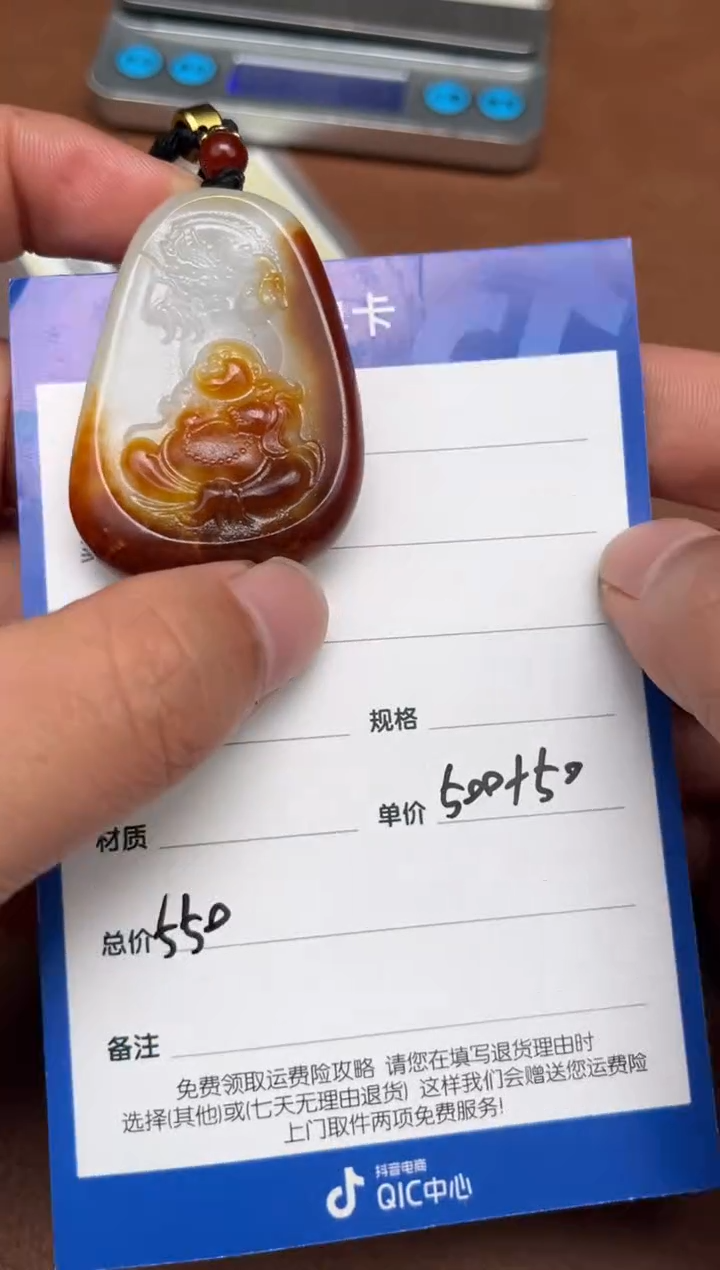 卡
规格
单价 500+50
材质
总价 550
备注
免费领取运费险攻略 请您在填写退货理由时
选择(其他)或(七天无理由退货) 这样我们会赠送您运费险
上门取件两项免费服务!
抖音电商
QIC中心